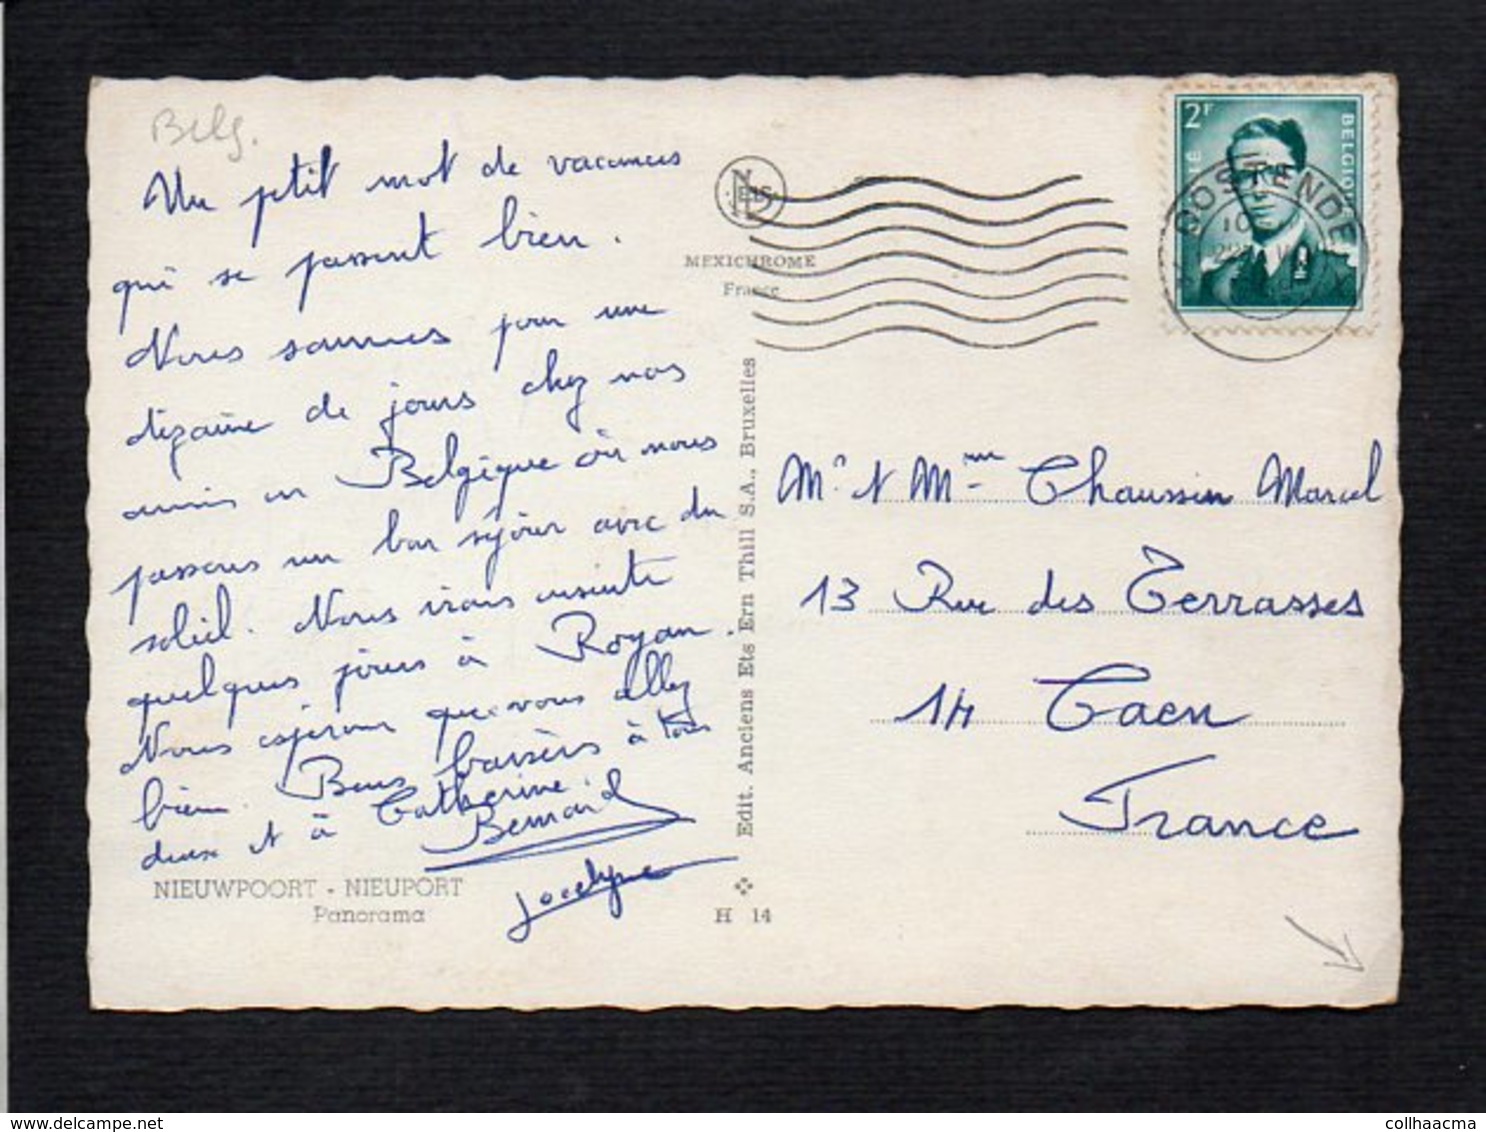 Belg.
Un ptit mot de vacances
qui se passent bien.
Nous sommes pour une
dizaine de jours chez nos
amis en Belgique où nous
passons un bon séjour avec du
soleil. Nous irons ensuite
quelques jours à Royan.
Nous espérons que vous allez
bien. Bons baisers à tous
deux et à Catherine.
Bernard
Jocelyne
NIEUWPOORT - NIEUPORT
Panorama
NELS
MEXICHROME
France
Edit. Anciens Ets Ern Thill S.A., Bruxelles
H 14
2F
BELGIQUE
OOSTENDE
Mr et Mme Chaussin Marcel
13 Rue des Terrasses
14 Caen
France
collhaacma